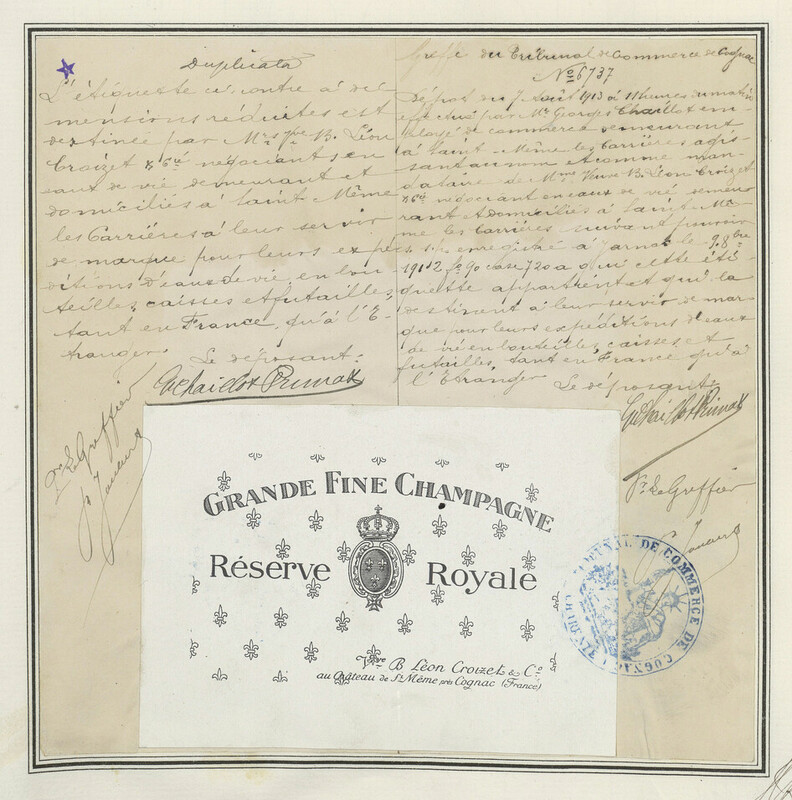 Duplicata
L'étiquette ci contre à di
mensions réduites est
destinée par Mrs Vve B. Léon
Croizet & Cie négociants en
eaux de vie demeurant et
domiciliés à Saint Même
les Carrières à leur servir
de marque pour leurs expé
ditions d'eaux de vie en bou
teilles, caisses et futailles,
tant en France, qu'à l'E-
tranger.
Le déposant:
GChaillot Prunax
Pr Le Greffier
Greffe du Tribunal de Commerce de Cognac
No 6737
Dépôt du 7 Août 1913 à 11 heures du matin
effectué par Mr Georges Chaillot em
ployé de commerce demeurant
à Saint Même les Carrières agis
sant au nom et comme man-
dataire de Mme Veuve B. Léon Croizet
& Cie négociant en eaux de vie demeu
rant et domiciliés à Saint Mê-
me les Carrières suivant pouvoir
s.s.p. enregistré à Jarnac le 9 8bre
1912 fo 90 case 720 a qui cette éti-
quette appartient et qui la
destinent à leur servir de mar
que pour leurs expéditions d'eaux
de vie en bouteilles, caisses et
futailles, tant en France qu'à
l'Etranger.
Le déposant:
GChaillot Prunax
Pr Le Greffier
GRANDE FINE CHAMPAGNE
Réserve Royale
Vve B. Léon Croizet & Co
au Château de St Même près Cognac (France)
TRIBUNAL DE COMMERCE DE COGNAC CHARENTE